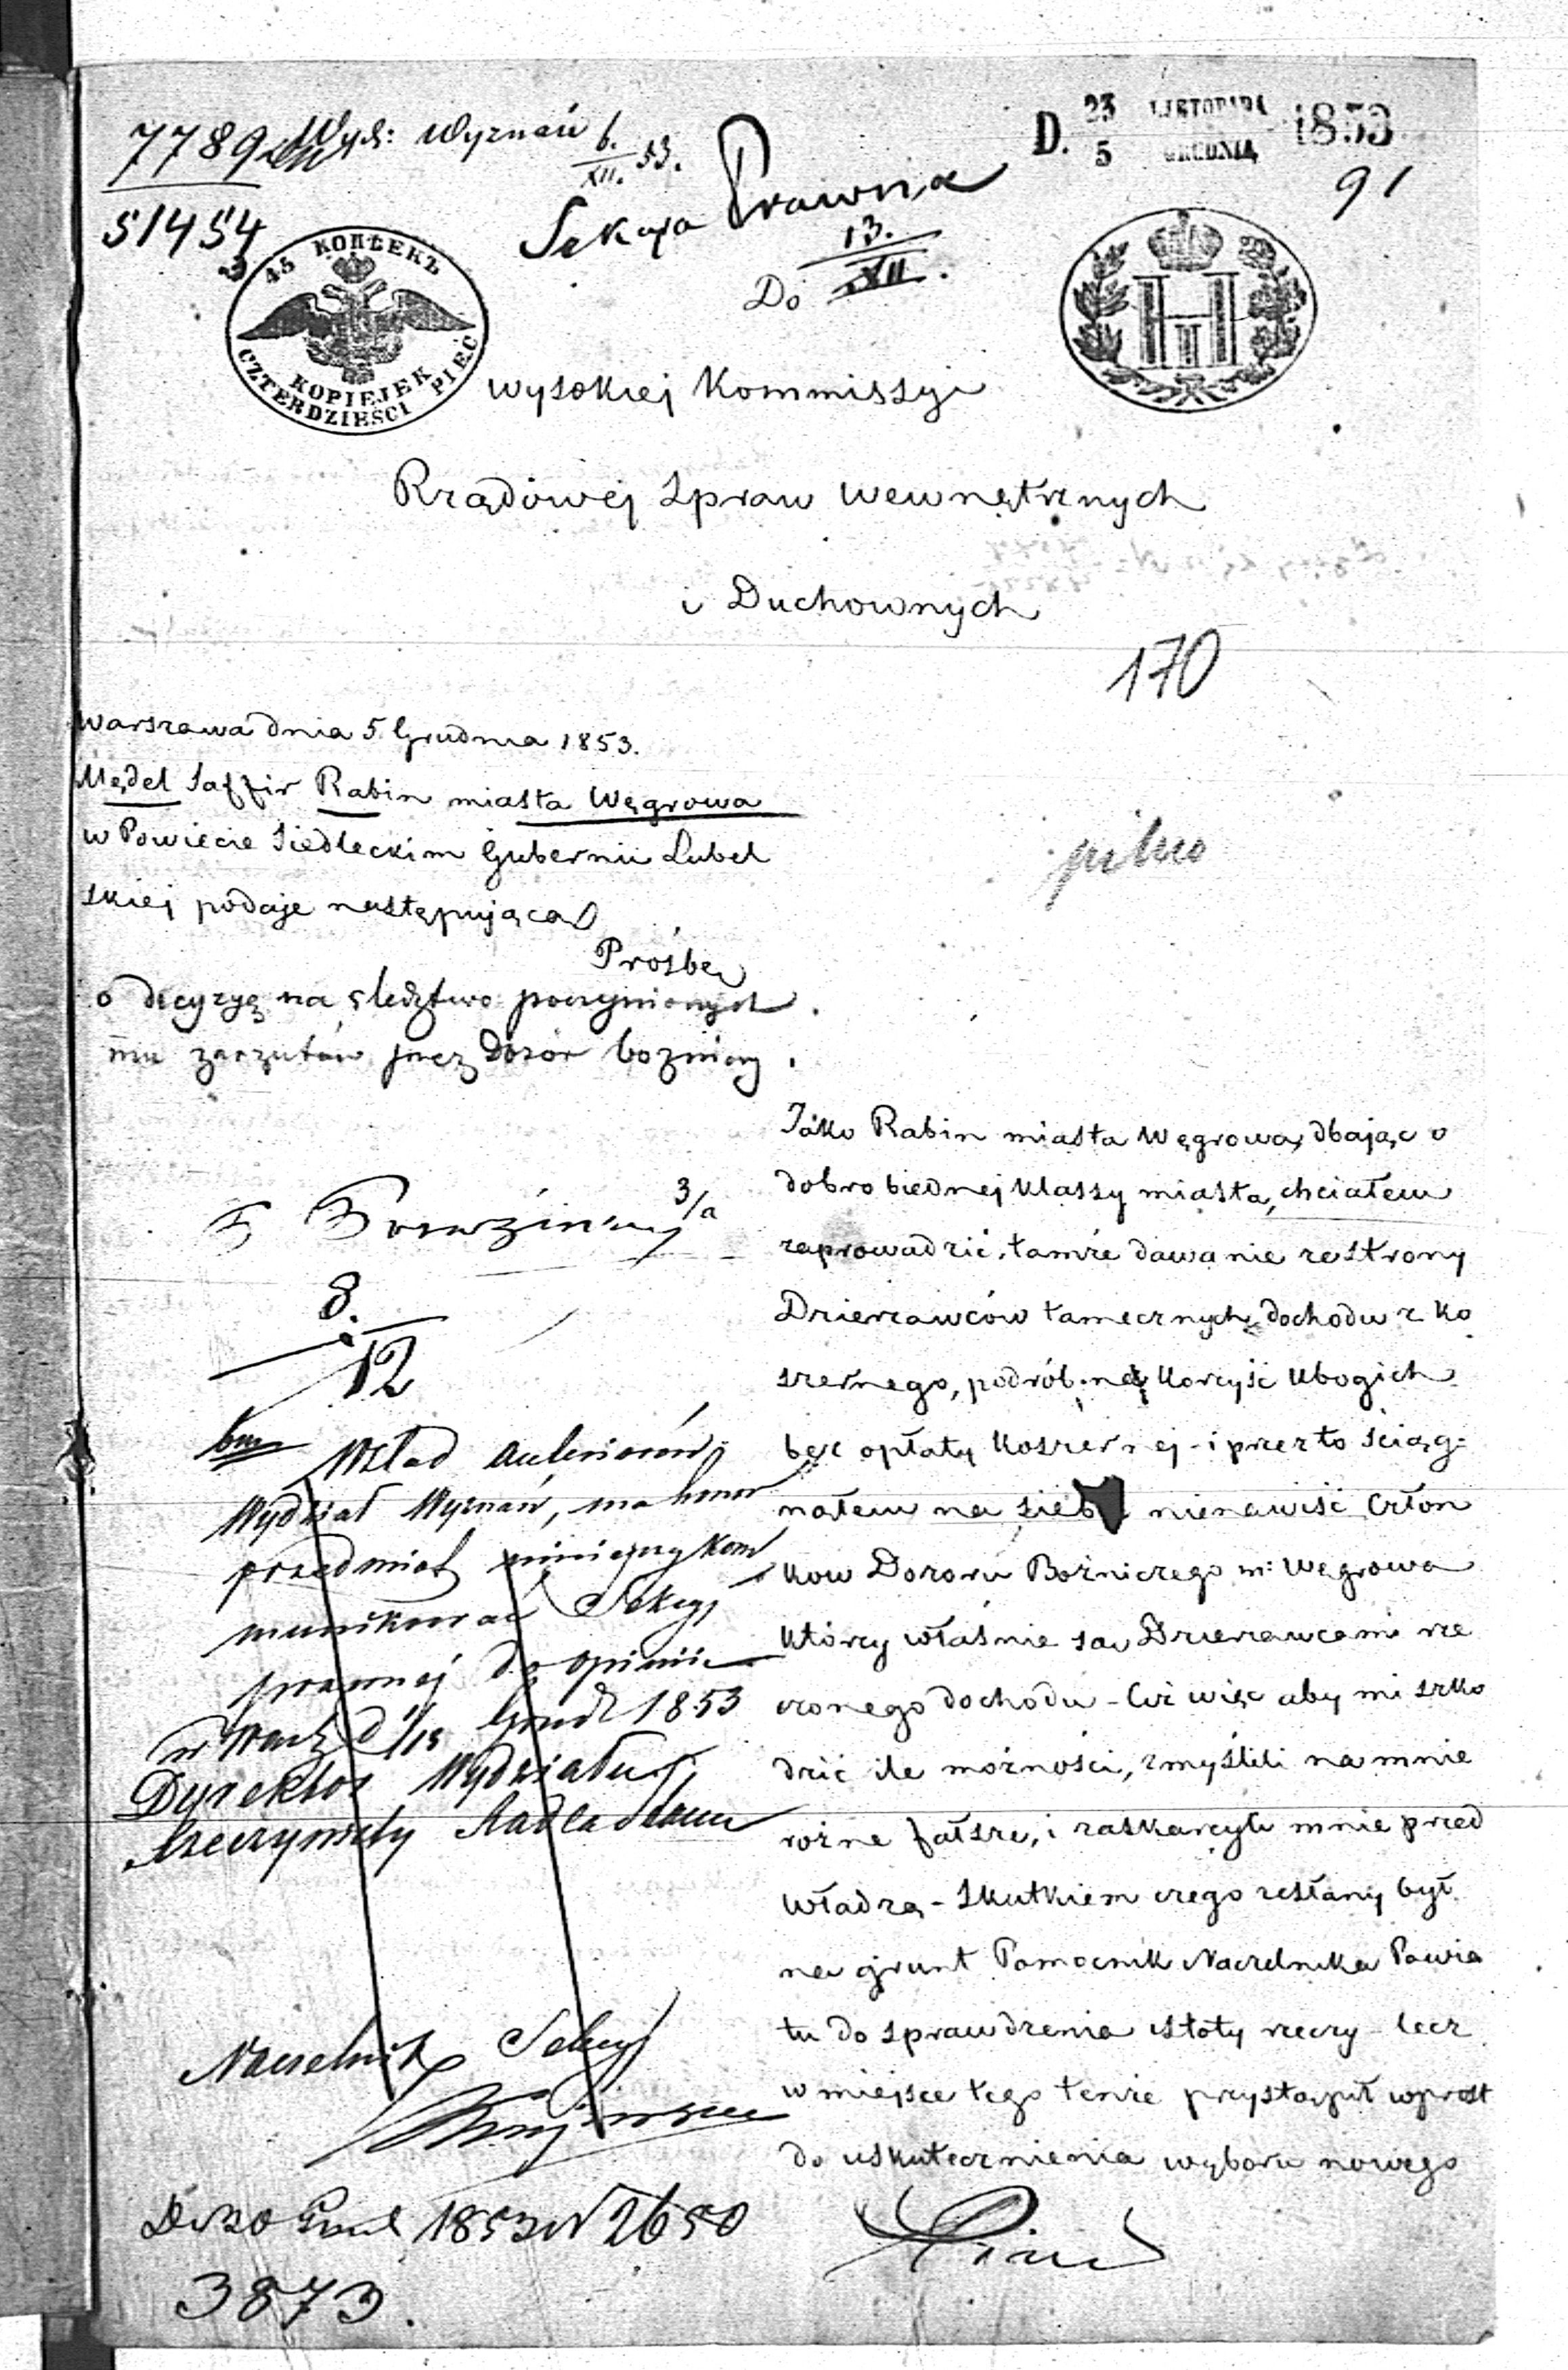 7789 Wyd: Wyznań 6. XII. 53.
51454
Sekcya Prawna
13. XII.
D. 23 LISTOPADA 1853
5 GRUDNIA
91
45 КОПѢЕКЪ
KOPIEJEK
CZTERDZIEŚCI PIĘĆ
Н I
Do
Wysokiej Kommissyi
Rządowej Spraw Wewnętrznych
i Duchownych
170
Warszawa dnia 5 Grudnia 1853.
Mędel Saffir Rabin miasta Węgrowa
w Powiecie Siedleckim Gubernii Lubel
skiej podaje następującą
Prośbę
o decyzyą na śledztwo poczynionych
mu zarzutów przez Dozór bozniczy.
pilno
Jako Rabin miasta Węgrowa, dbając o
dobro biednej klassy miasta, chciałem
zaprowadzić tamże dawanie ze strony
Dzierżawców tamecznych dochodu z ko
szernego, podrób na korzyść ubogich
bez opłaty koszernej - i przez to ściąg-
nąłem na siebie nienawiść Człon
ków Dozoru Bożniczego m: Węgrowa
którzy właśnie są Dzierżawcami rze
czonego dochodu - Ciż więc aby mi szko
dzić ile możności, zmyślili na mnie
różne fałsze, i zaskarżyli mnie przed
władzą - Skutkiem czego zesłany był
na grunt Pomocnik Naczelnika Powia
tu do sprawdzenia istoty rzeczy lecz
w miejsce tego tenże przystąpił wprost
do uskutecznienia wyboru nowego
3/a
8.
12
Wydział Wyznań, ma honor
przedmiot niniejszy kom
munikować Sekcyi
prawnej do opinii
Grud 1853
Dyrektor Wydziału
Rzeczywisty Radca Stanu
Naczelnik Sekcyi
1853 N 2650
3873.